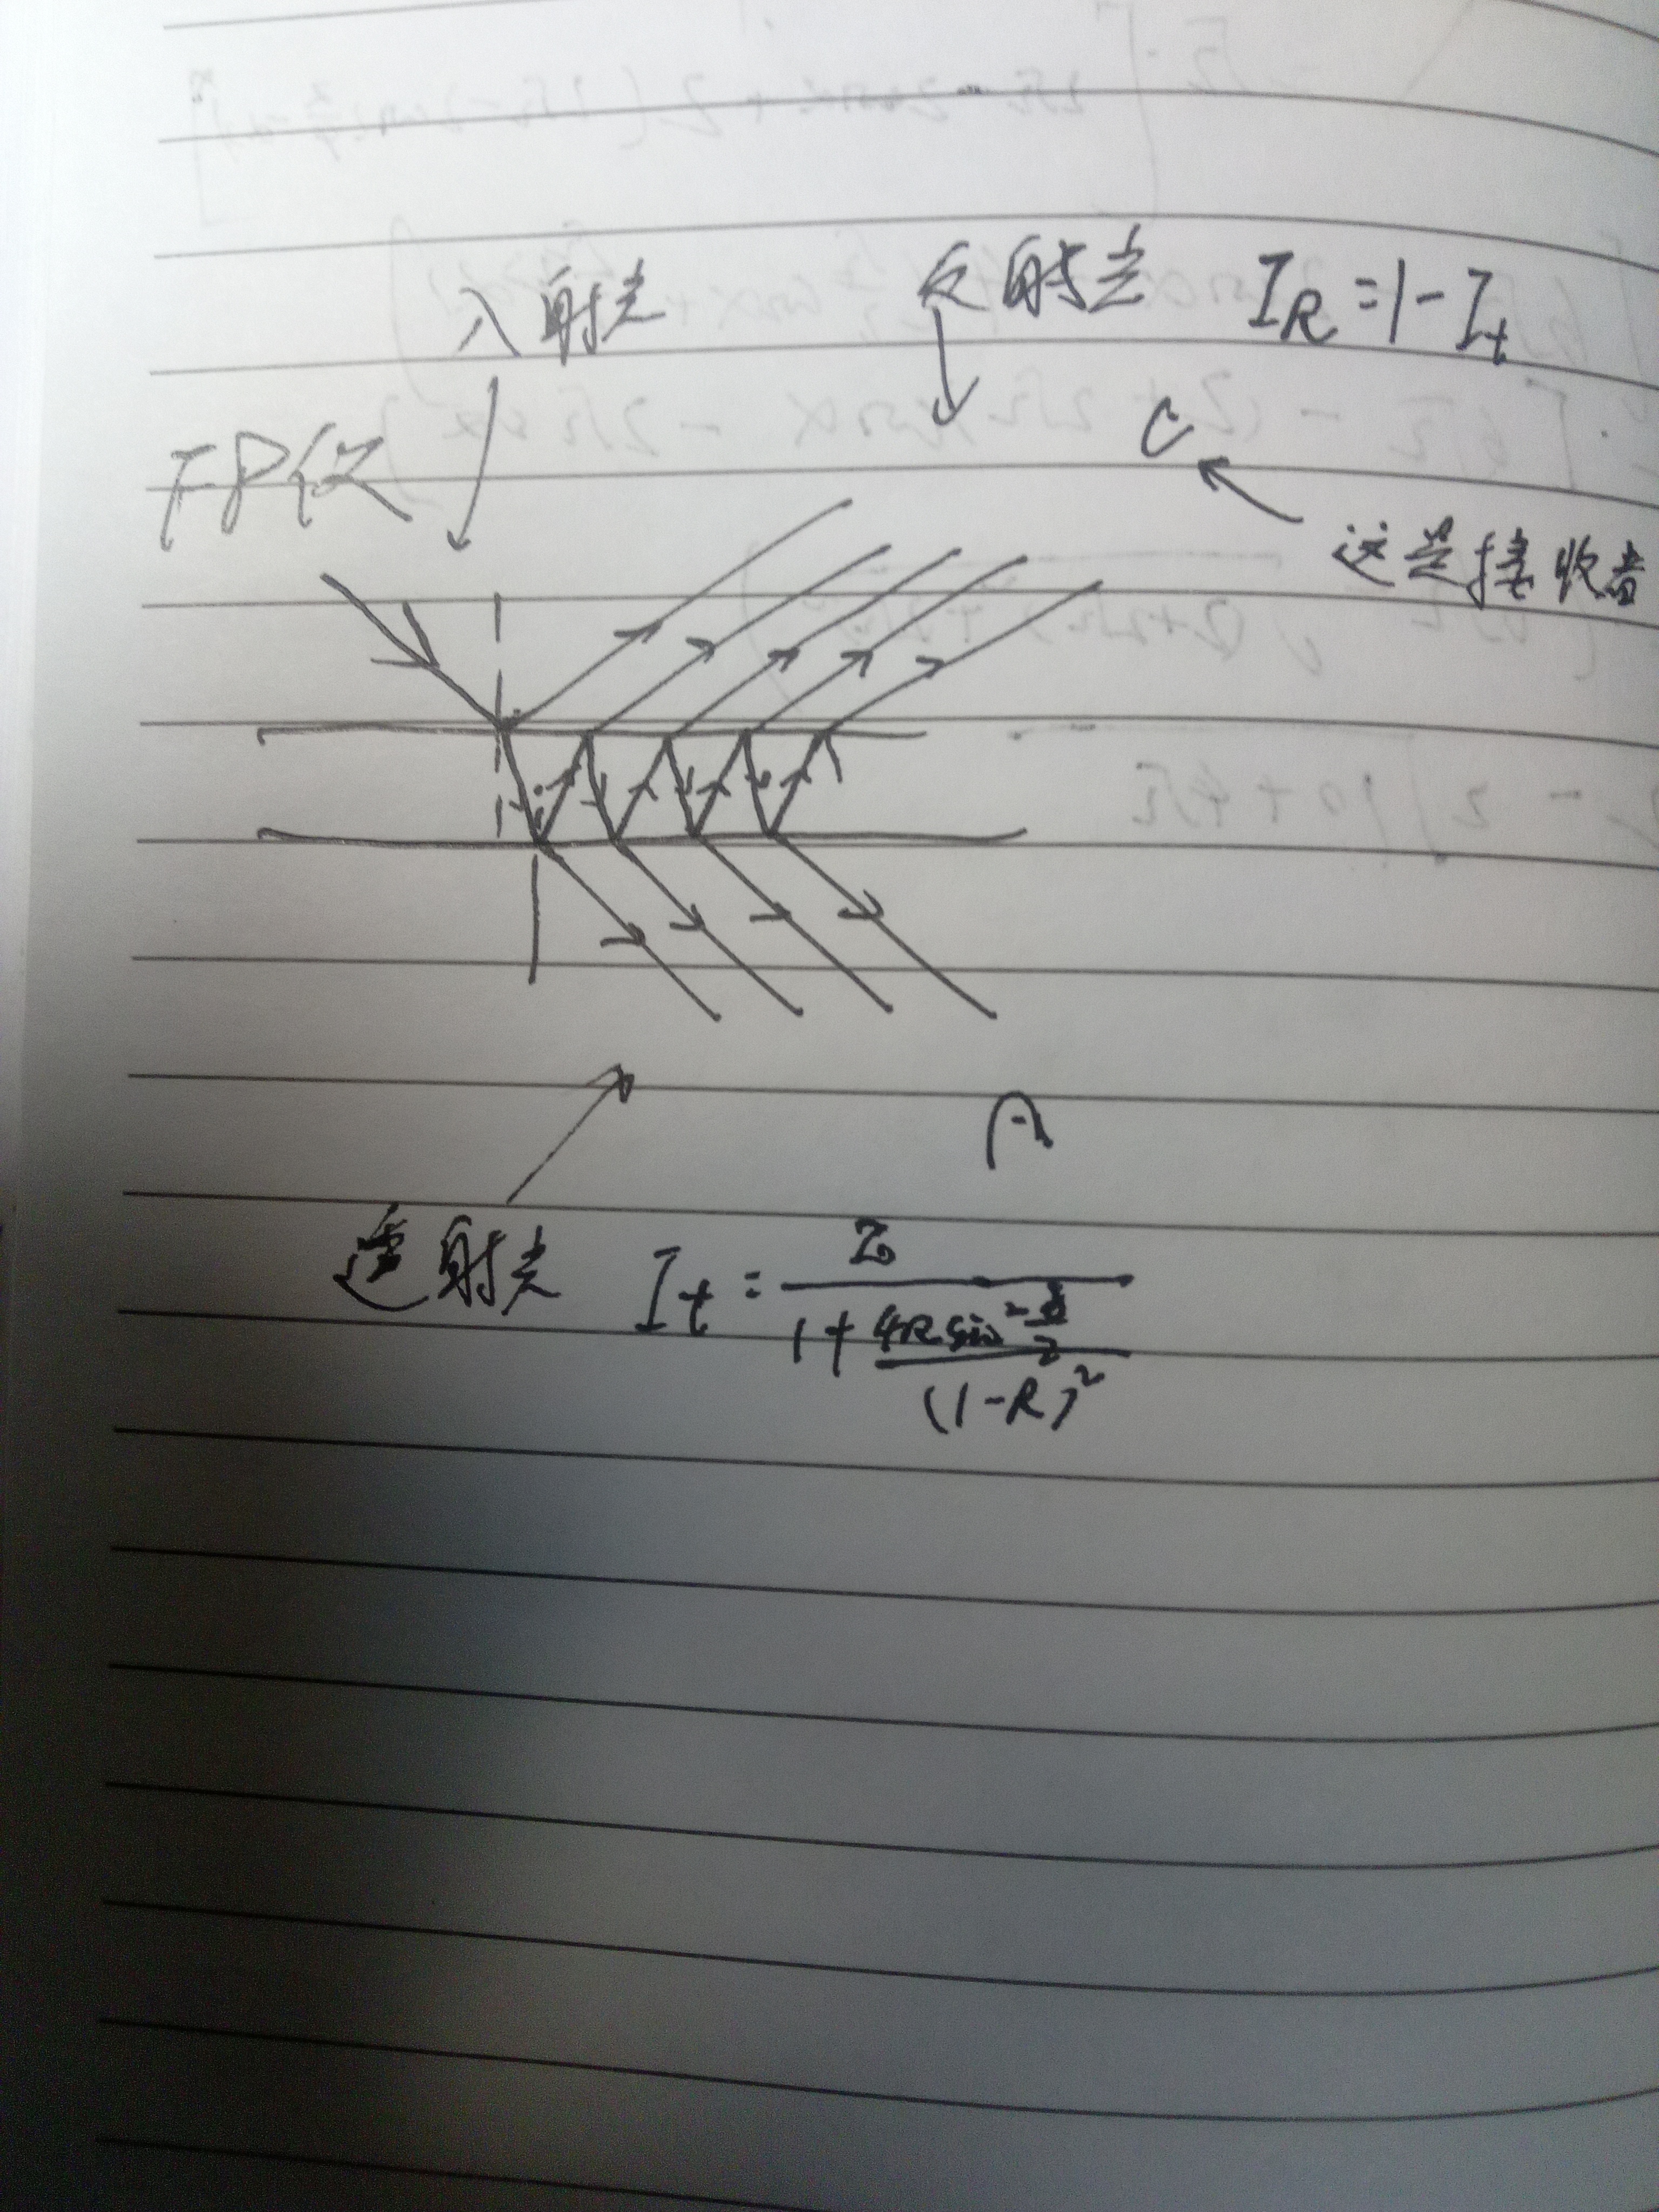 入射光
反射光 I_R = 1 - I_t
FP仪
C
这是接收者
i
A
透射光 I_t = I₀ / (1 + 4R sin² (δ/2) / (1-R)²)